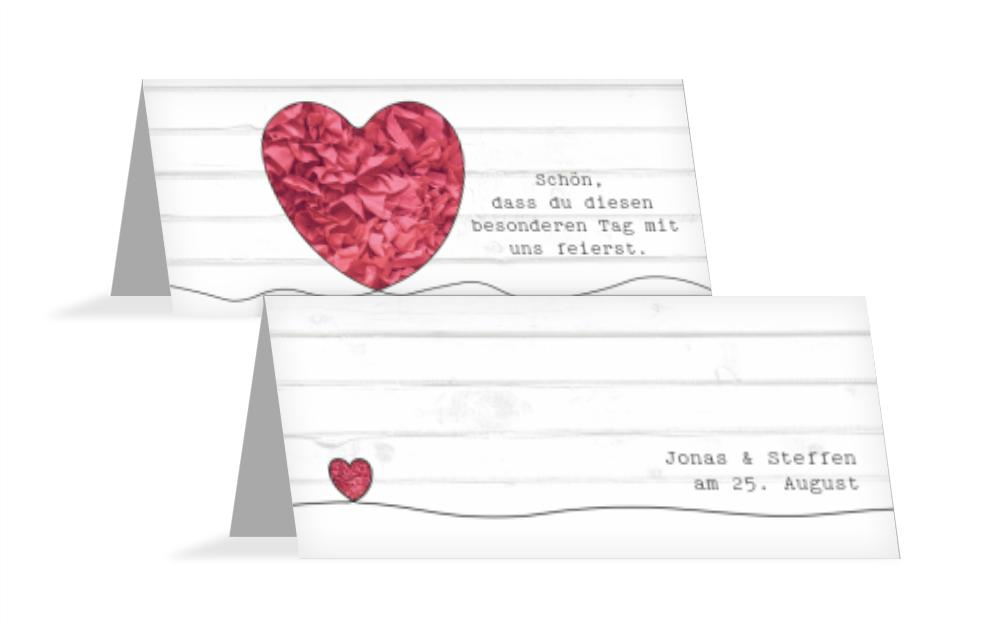 Schön,
dass du diesen
besonderen Tag mit
uns feierst.
Jonas & Steffen
am 25. August